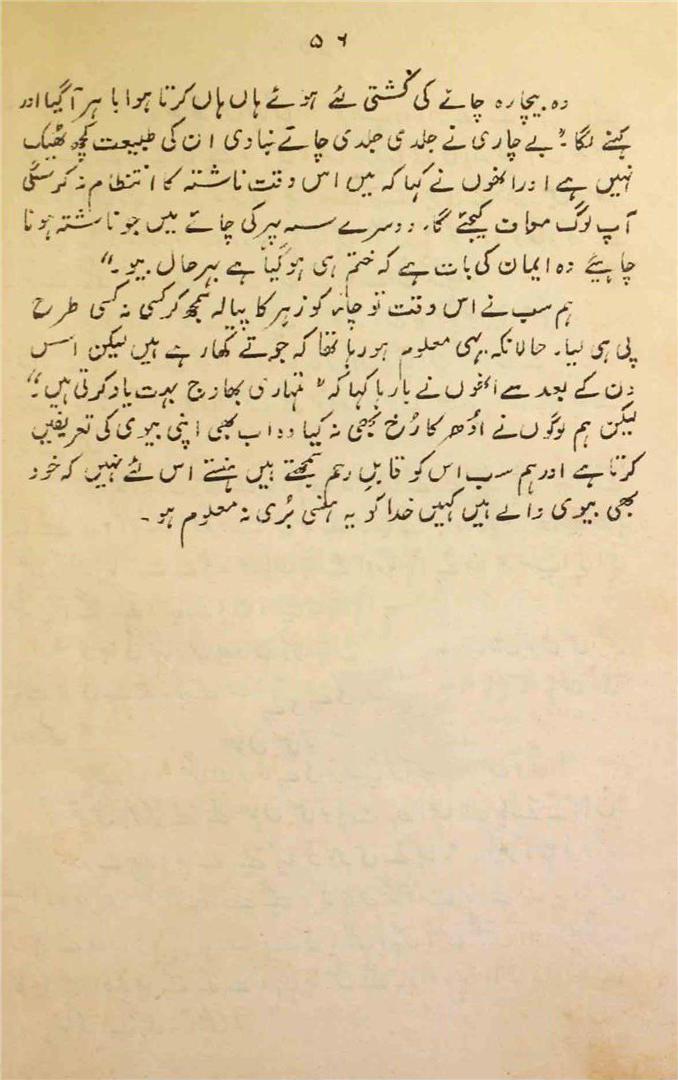 ۵۶
وہ بیچارہ چائے کی کشتی لئے ہوئے ہاں ہاں کرتا ہوا باہر آگیا اور
کہنے لگا۔ "بے چاری نے جلدی جلدی چائے بنا دی ان کی طبیعت کچھ ٹھیک
نہیں ہے اور انھوں نے کہا کہ میں اس وقت ناشتہ کا انتظام نہ کر سکی
آپ لوگ معاف کیجئے گا۔ دوسرے سہ پہر کی چائے میں جو ناشتہ ہونا
چاہیئے وہ ایمان کی بات ہے کہ ختم ہی ہو گیا ہے بہر حال پیو۔"
ہم سب نے اس وقت تو چائے کو زہر کا پیالہ سمجھ کر کسی نہ کسی طرح
پی ہی لیا۔ حالانکہ یہی معلوم ہو رہا تھا کہ جوتے کھا رہے ہیں لیکن اس
دن کے بعد سے انھوں نے بارہا کہا کہ "تمہاری بھاوج بہت یاد کرتی ہیں۔"
لیکن ہم لوگوں نے اُدھر کا رُخ بھی نہ کیا وہ اب بھی اپنی بیوی کی تعریفیں
کرتا ہے اور ہم سب اس کو قابلِ رحم سمجھتے ہیں ہنستے اس لئے نہیں کہ خود
بھی بیوی والے ہیں کہیں خدا کو یہ ہنسی بُری نہ معلوم ہو۔